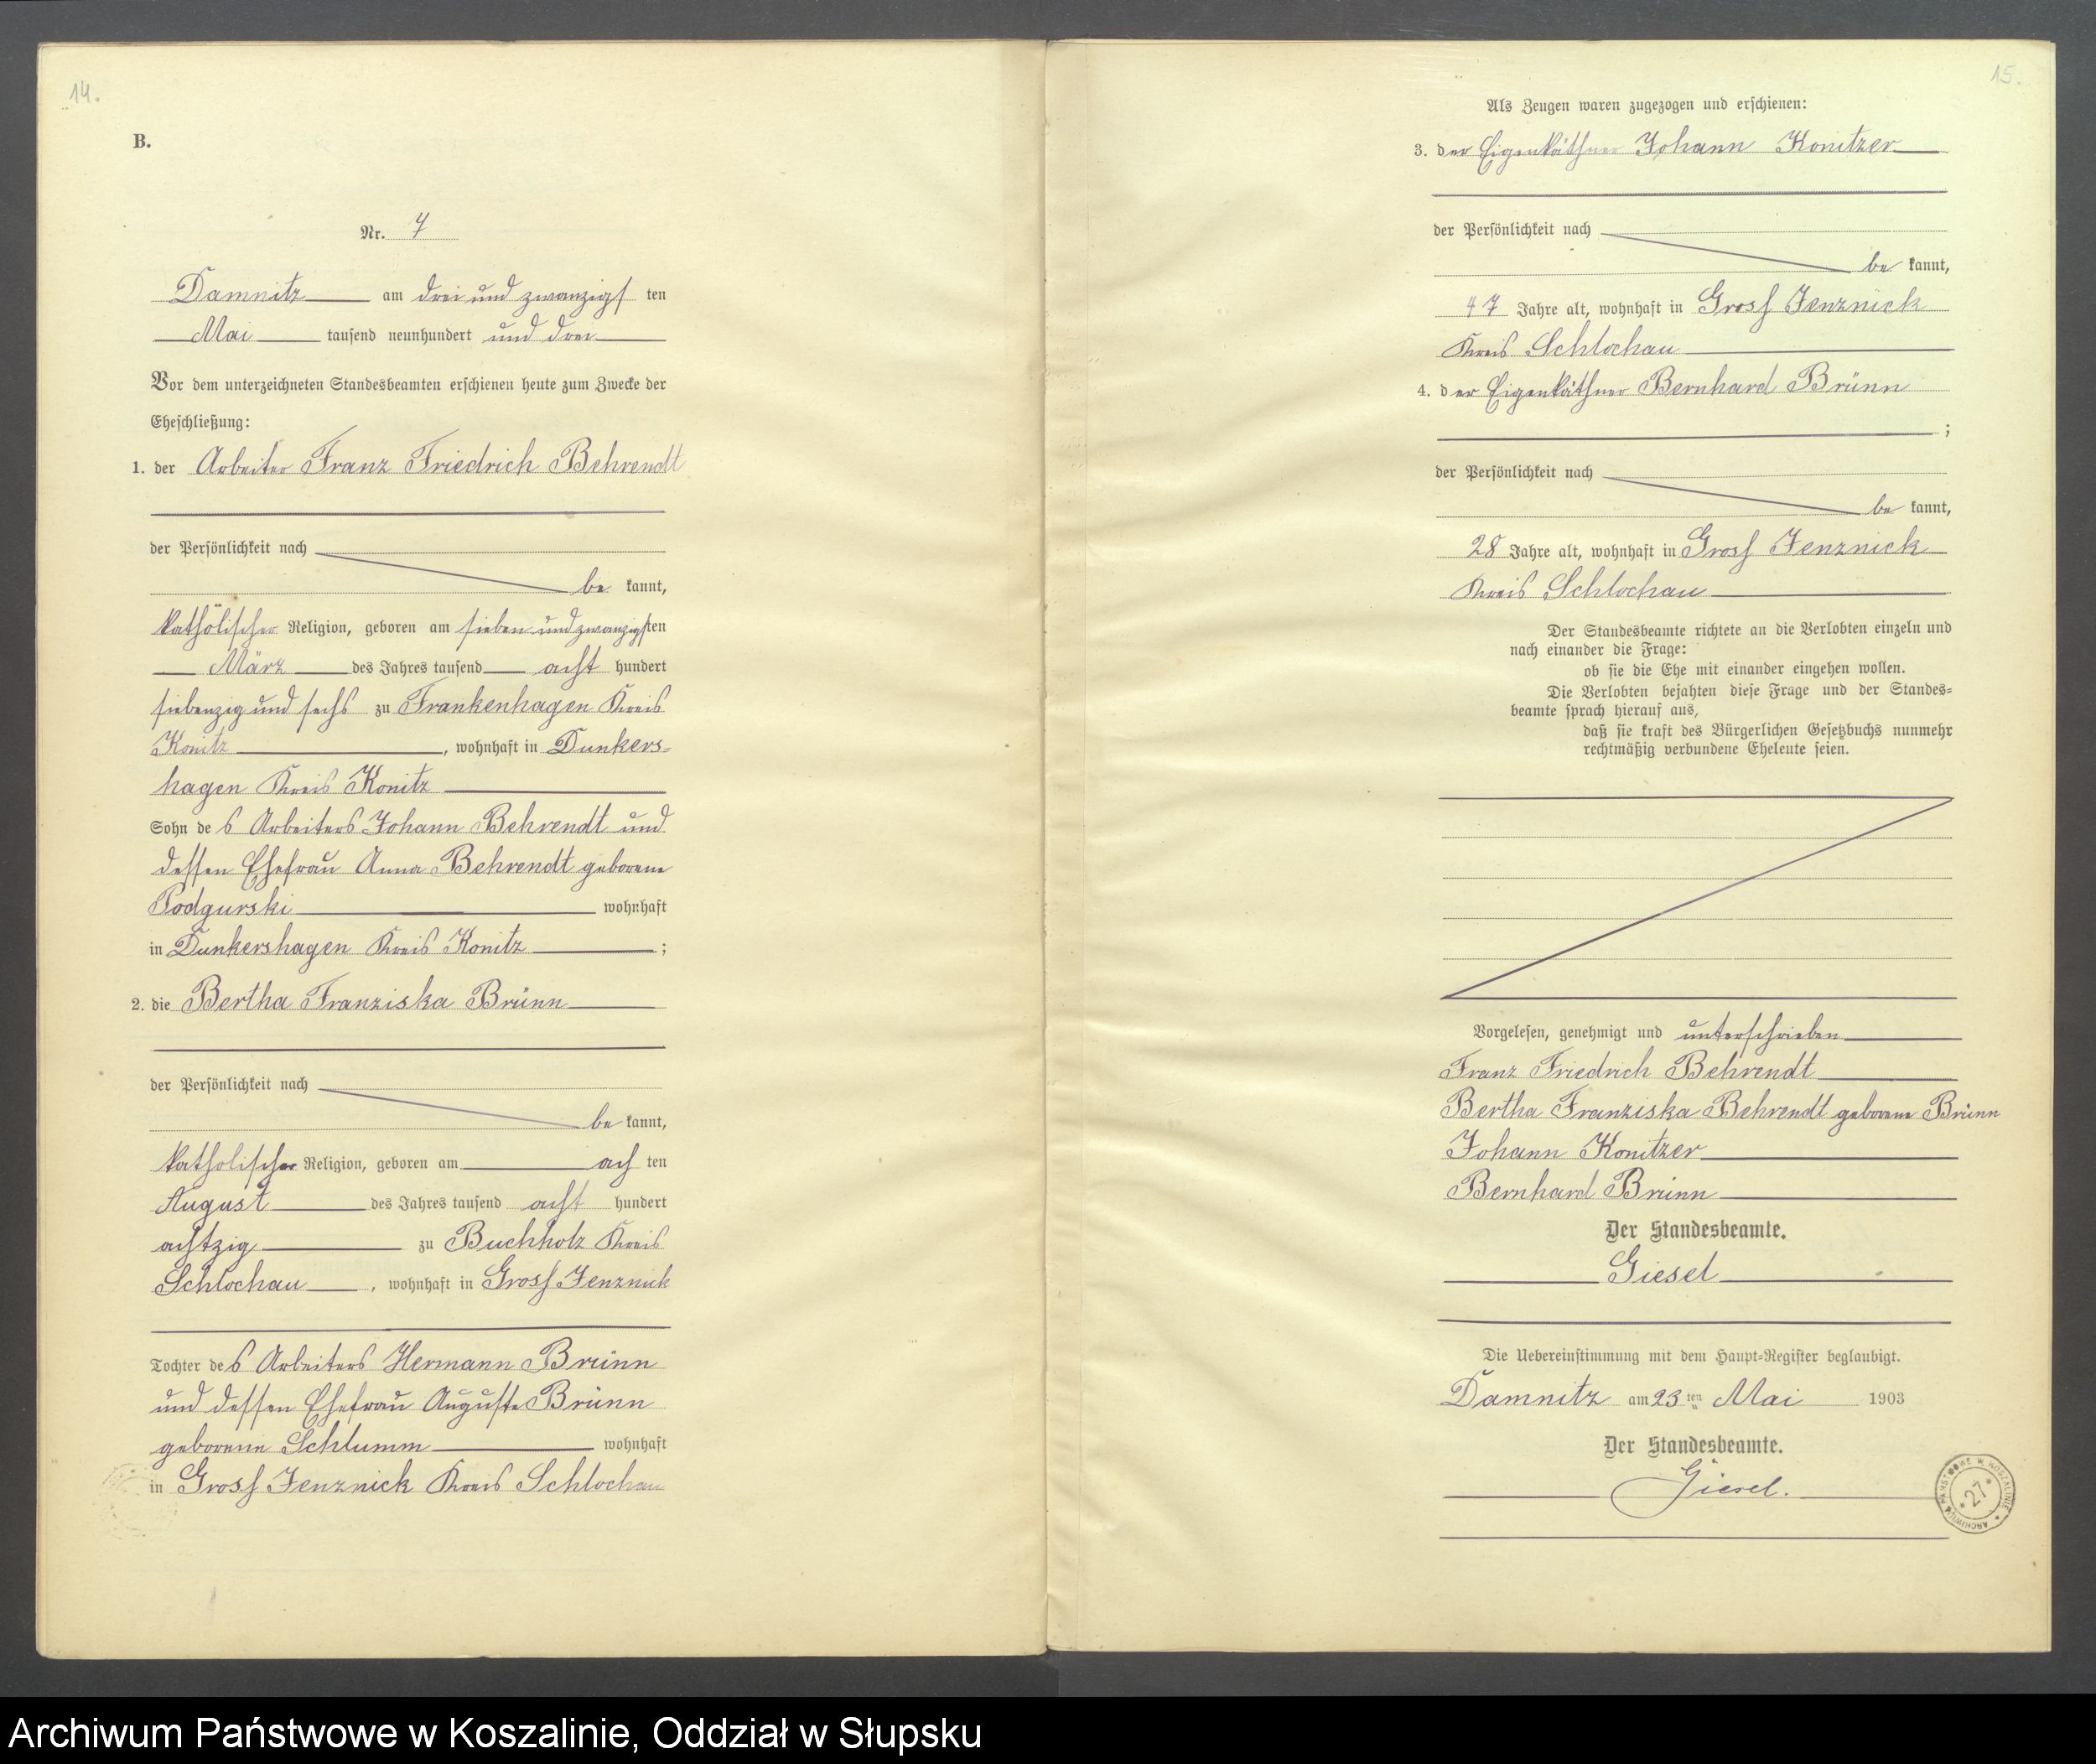 14.
B.
Nr. 7
Damnitz am drei und zwanzigs ten
Mai tausend neunhundert und drei
Vor dem unterzeichneten Standesbeamten erschienen heute zum Zwecke der
Eheschließung:
1. der Arbeiter Franz Friedrich Behrendt
der Persönlichkeit nach
be kannt,
katholischer Religion, geboren am sieben und zwanzigsten
März des Jahres tausend acht hundert
siebenzig und sechs zu Frankenhagen Kreis
Konitz, wohnhaft in Dunkers-
hagen Kreis Konitz
Sohn des Arbeiters Johann Behrendt und
dessen Ehefrau Anna Behrendt geborene
Podgurski wohnhaft
in Dunkershagen Kreis Konitz;
2. die Bertha Franziska Brünn
der Persönlichkeit nach
be kannt,
katholischer Religion, geboren am ach ten
August des Jahres tausend acht hundert
achtzig zu Buchholz Kreis
Schlochau, wohnhaft in Gross Jenznick
Tochter des Arbeiters Hermann Brünn
und dessen Ehefrau Auguste Brünn
geborene Schlumm wohnhaft
in Gross Jenznick Kreis Schlochau
15.
Als Zeugen waren zugezogen und erschienen:
3. der Eigenkäthner Johann Konitzer
der Persönlichkeit nach
be kannt,
47 Jahre alt, wohnhaft in Gross Jenznick
Kreis Schlochau
4. der Eigenkäthner Bernhard Brünn
;
der Persönlichkeit nach
be kannt,
28 Jahre alt, wohnhaft in Gross Jenznick
Kreis Schlochau
Der Standesbeamte richtete an die Verlobten einzeln und
nach einander die Frage:
ob sie die Ehe mit einander eingehen wollen.
Die Verlobten bejahten diese Frage und der Standes=
beamte sprach hierauf aus,
daß sie kraft des Bürgerlichen Gesetzbuchs nunmehr
rechtmäßig verbundene Eheleute seien.
Vorgelesen, genehmigt und unterschrieben
Franz Friedrich Behrendt
Bertha Franziska Behrendt geborene Brünn
Johann Konitzer
Bernhard Brünn
Der Standesbeamte.
Giesel
Die Uebereinstimmung mit dem Haupt=Register beglaubigt.
Damnitz am 23 ten Mai 1903
Der Standesbeamte.
Giesel.
ARCHIWUM PAŃSTWOWE W KOSZALINIE
* 27 *
Archiwum Państwowe w Koszalinie, Oddział w Słupsku